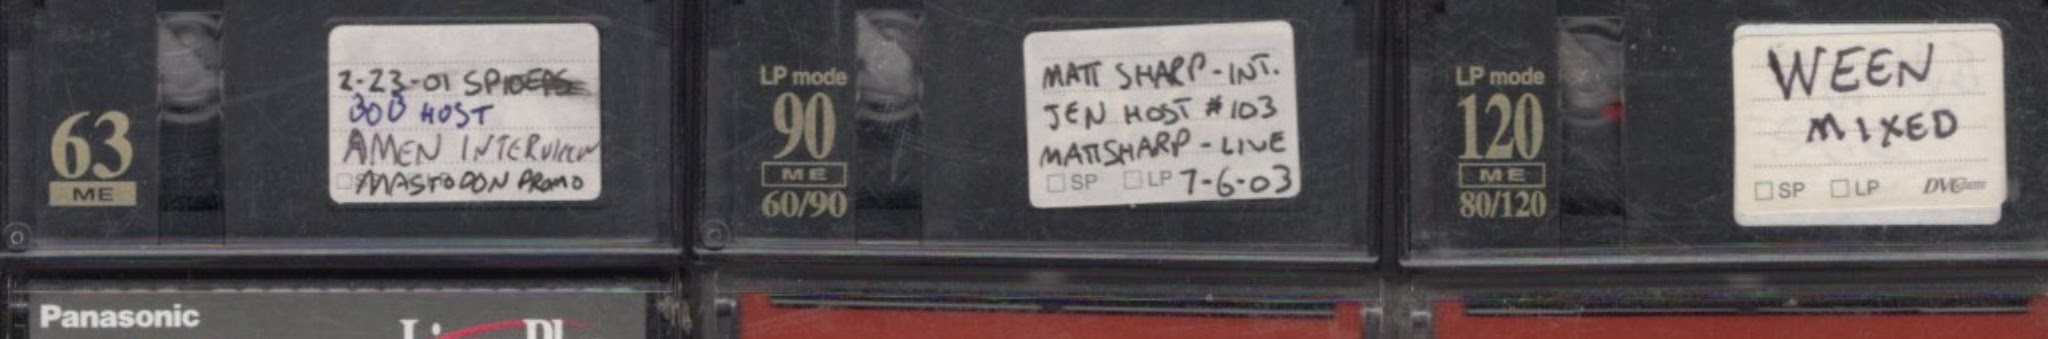 63
ME
2-23-01 SPIDERS
BOB HOST
AMEN INTERVIEW
MASTODON PROMO
LP mode
90
ME
60/90
MATT SHARP - INT.
JEN HOST #103
MATT SHARP - LIVE
SP LP 7-6-03
LP mode
120
ME
80/120
WEEN
MIXED
SP LP DVC
Panasonic